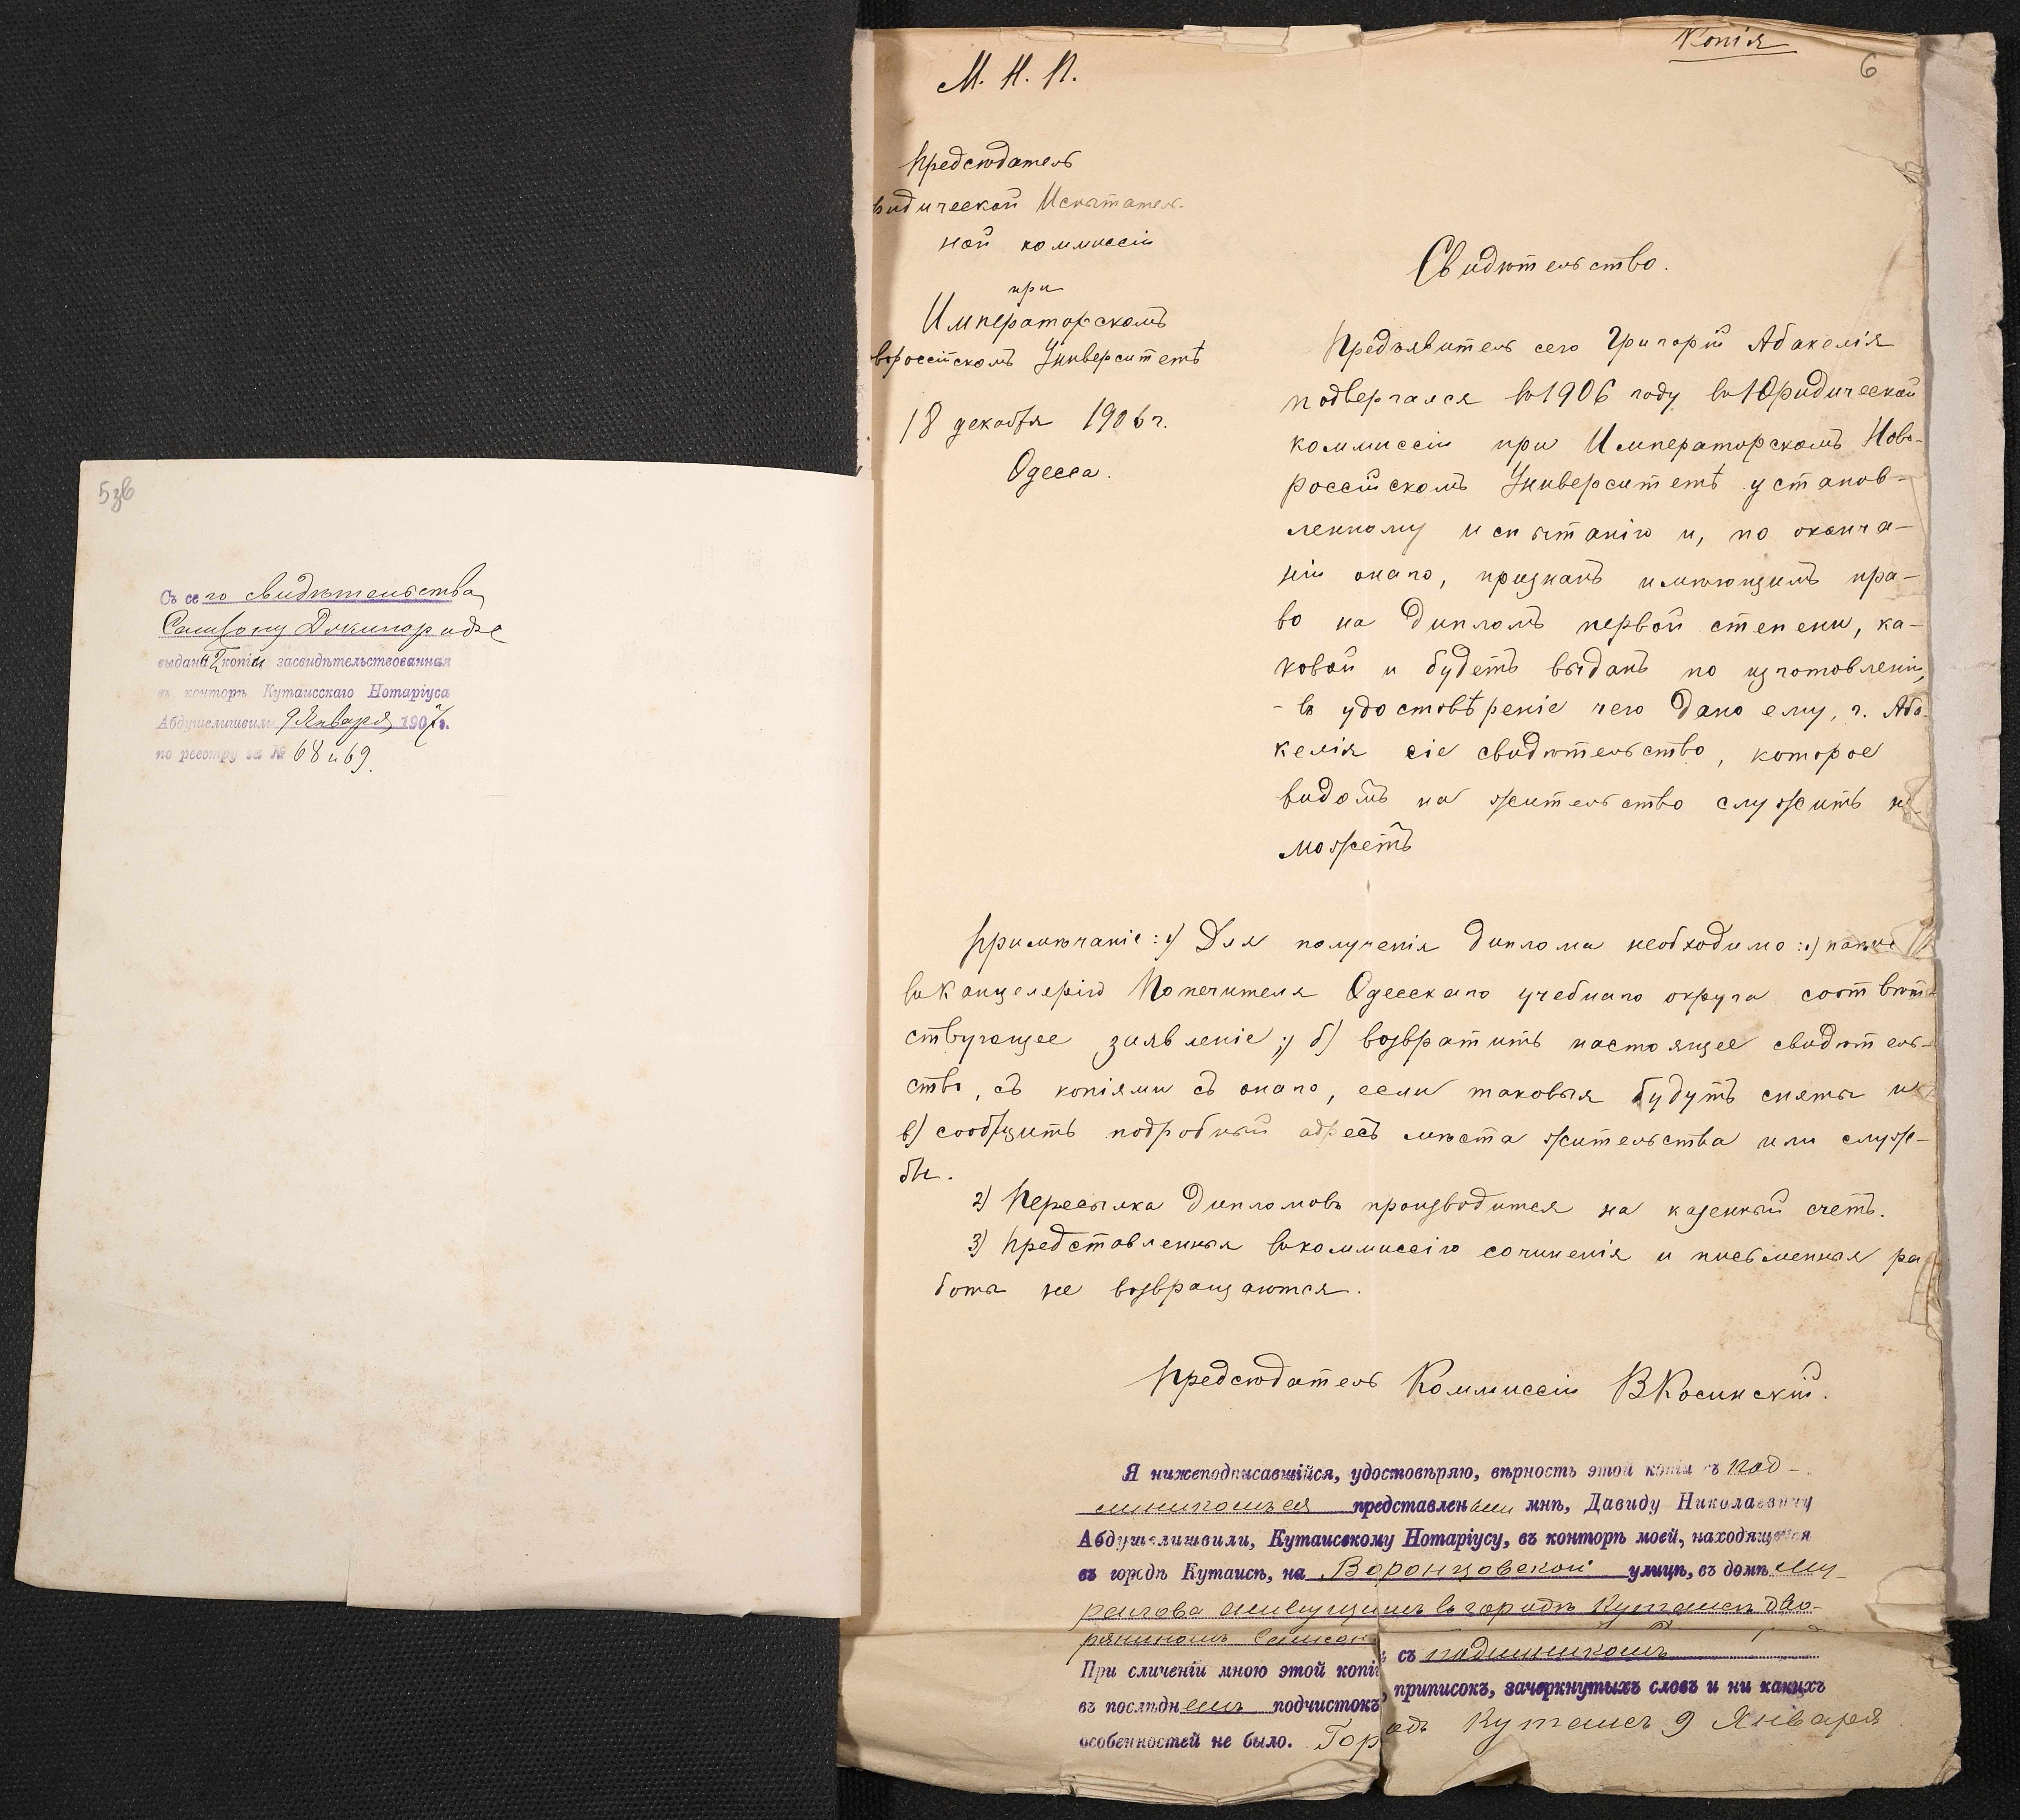 5зб
Съ сего свидѣтельства
Самсону Джипоридзе
выданы 2 копіи засвидѣтельствованная
въ конторѣ Кутаисскаго Нотаріуса
Абдушелишвили 9 Января 1907 г.
по реестру за № 68 и 69.
Копія
6
М. Н. П.
Предсѣдатель
ридической Испытатель-
ной коммиссіи
при
Императорскомъ
вороссійскомъ Университетѣ
18 декабря 1906 г.
Одесса.
Свидѣтельство.
Предъявитель сего Григорій Абакелія
подвергался въ 1906 году въ Юридической
коммиссіи при Императорскомъ Ново-
россійскомъ Университетѣ установ-
ленному испытанію и, по оконча-
ніи онаго, признанъ имѣющимъ пра-
во на дипломъ первой степени, ка-
ковой и будетъ выданъ по изготовленіи,
- въ удостовѣреніе чего дано ему, г. Аба-
келія сіе свидѣтельство, которое
видомъ на жительство служить не
можетъ
Примѣчаніе: 1) Для полученія диплома необходимо: а)
въ Канцелярію Попечителя Одесскаго учебнаго округа соотвѣт-
ствующее заявленіе; б) возвратить настоящее свидѣтель-
ство, съ копіями съ онаго, если таковыя будутъ сняты и
в) сообщить подробный адресъ мѣста жительства или служ-
бы.
2) Пересылка дипломовъ производится на казенный счетъ.
3) Представленныя въ коммиссію сочиненія и письменныя ра
боты не возвращаются.
Предсѣдатель Коммиссіи В Косинскій.
Я нижеподписавшійся, удостовѣряю, вѣрность этой копіи съ под-
линникомъ ея представленымъ мнѣ, Давиду Николаевичу
Абдушелишвили, Кутаисскому Нотаріусу, въ конторѣ моей, находящейся
въ городѣ Кутаисѣ, на Воронцовской улицѣ, въ домѣ
живущимъ въ городѣ Кутаисѣ дво-
ряниномъ
При сличеніи мною этой копіи съ подлинникомъ
въ послѣднемъ подчистокъ, приписокъ, зачеркнутыхъ словъ и ни какихъ
особенностей не было. Городъ Кутаисъ 9 Января